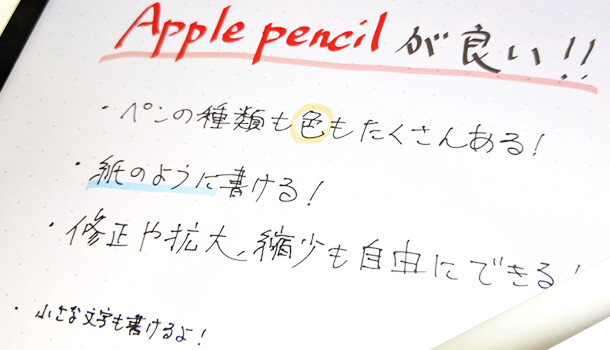 Apple pencil が良い!!
・ペンの種類も色もたくさんある!
・紙のように書ける!
・修正や拡大、縮少も自由にできる!
・小さな文字も書けるよ!